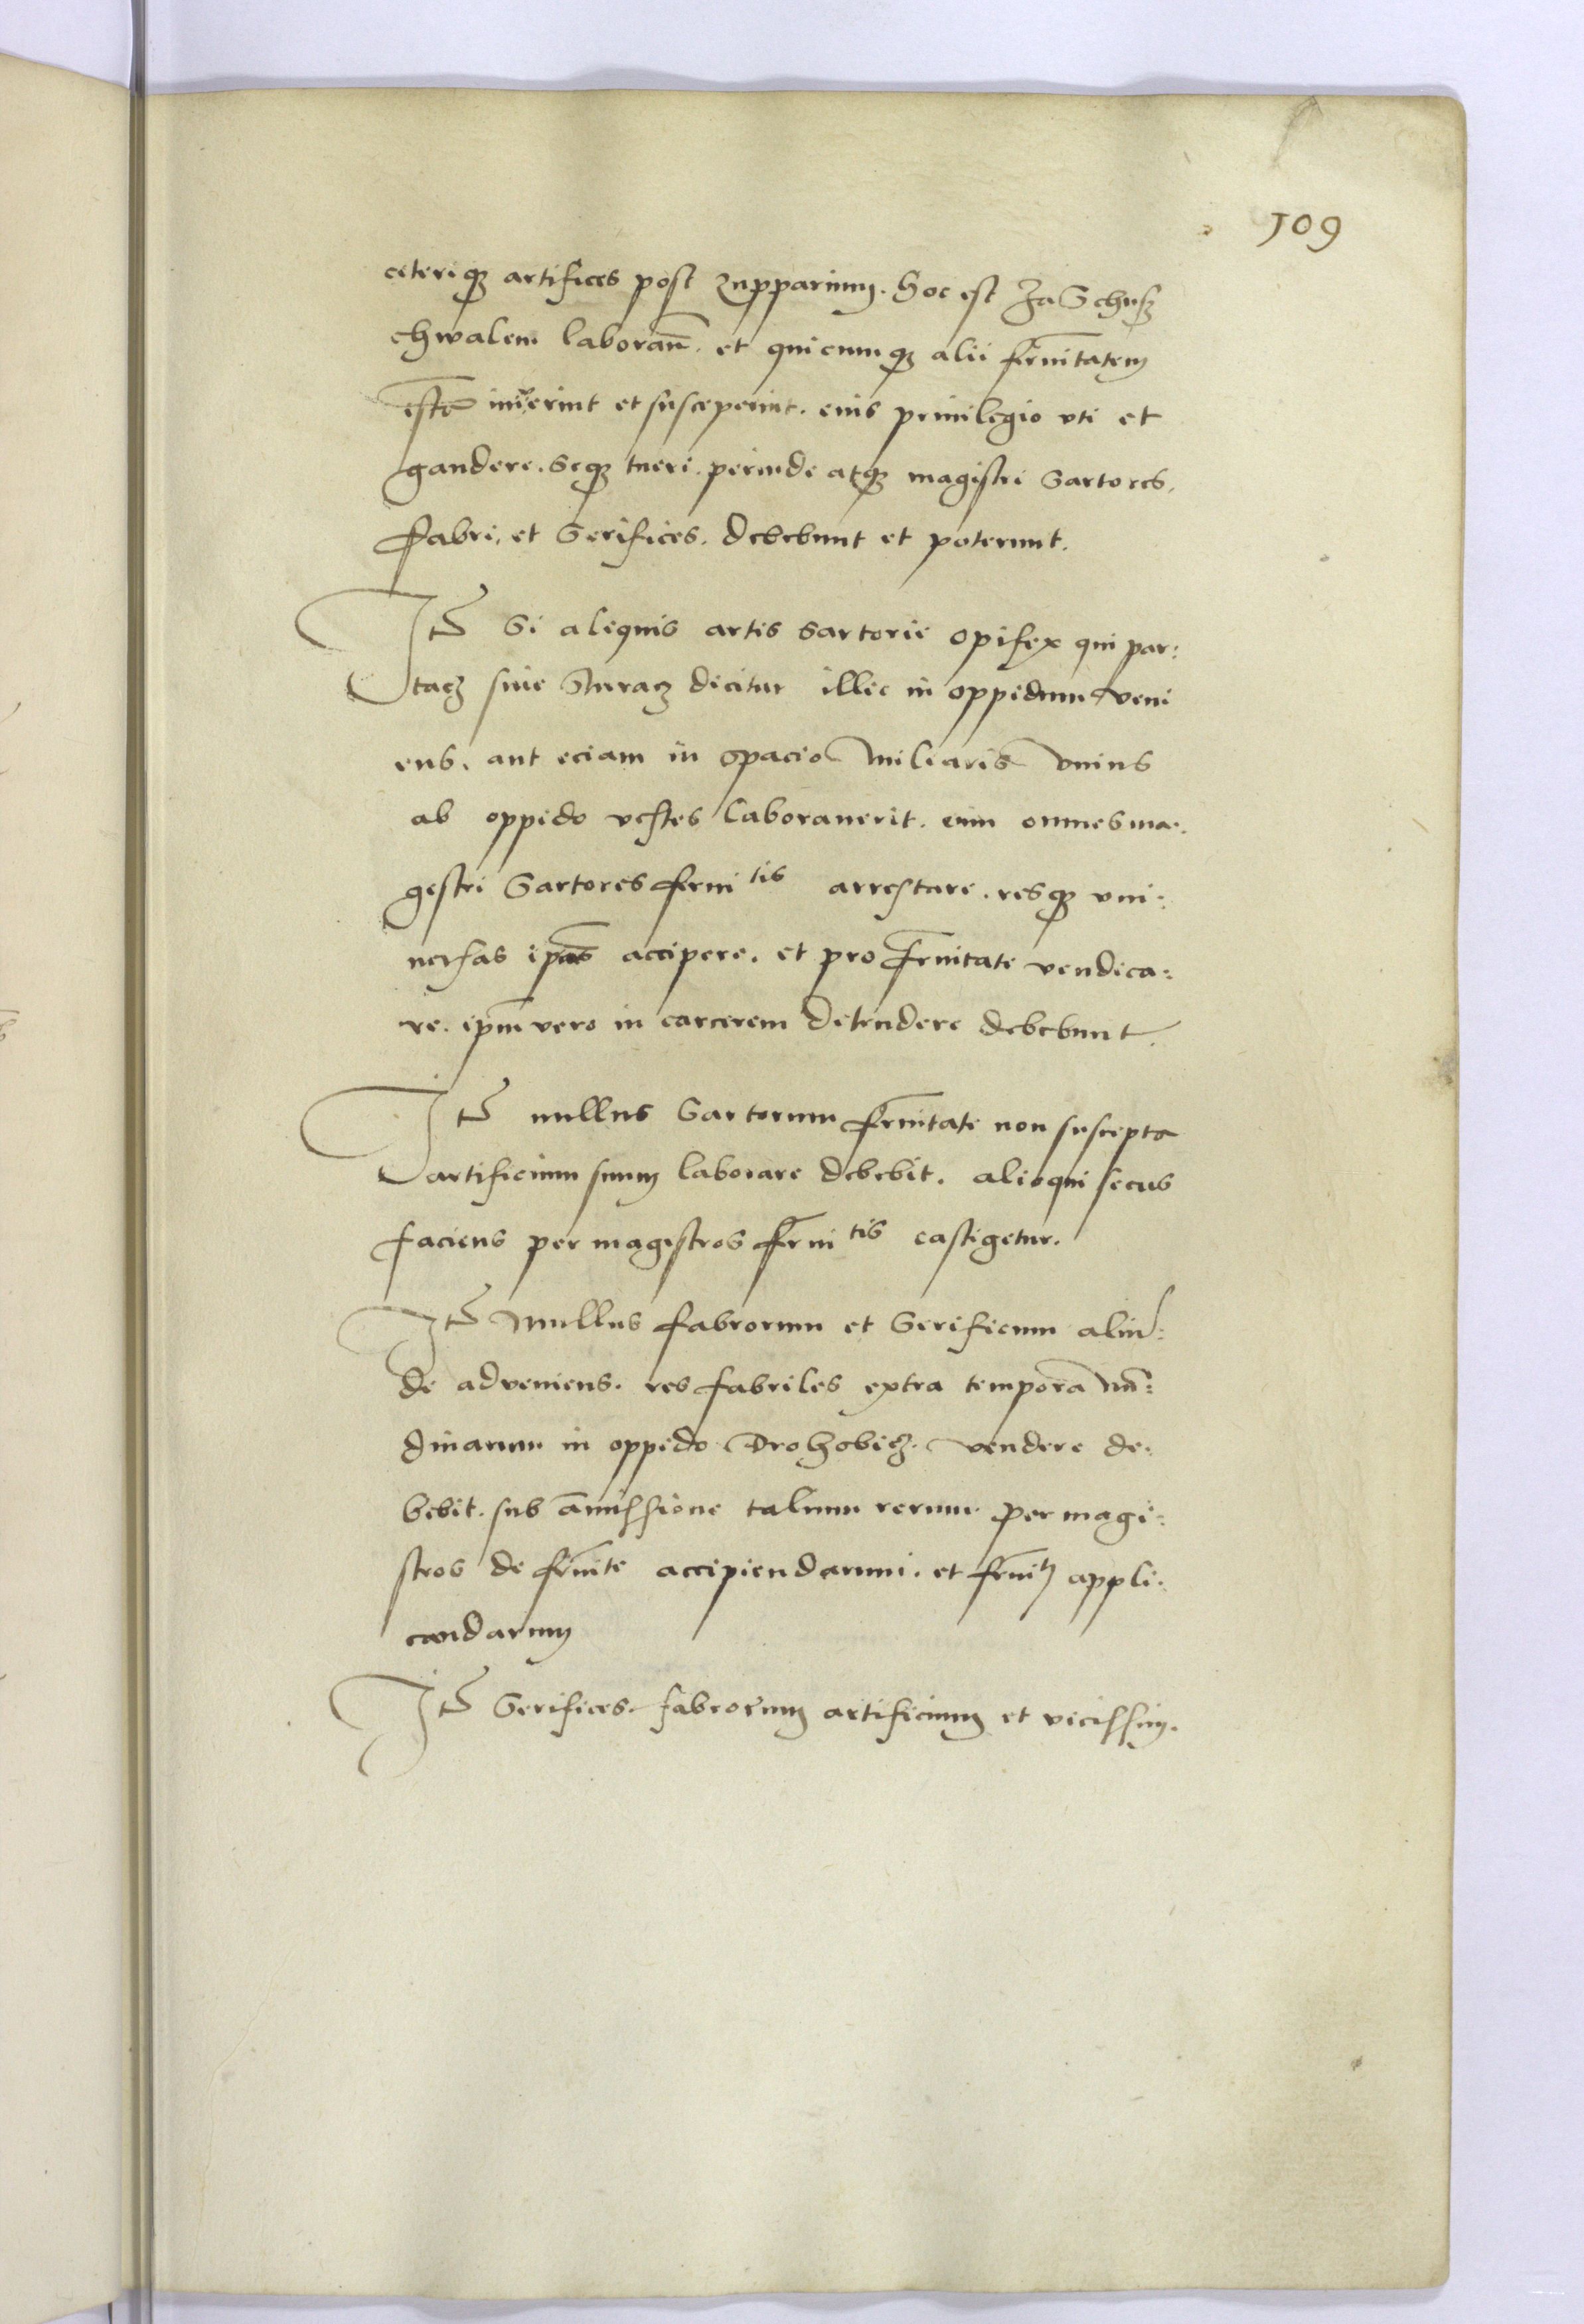 109
ceteriqȝ artifices post zupparium. Hoc est Za Schusz
chwalem laboran̄. et quicumqȝ alii fr̄nitatem
istā inierint et susceperint. eius priuilegio vti et
gaudere. seqȝ tueri. perinde atqȝ magistri Sartores.
Fabri, et Serifices. debebunt et poterunt.
Itē Si aliquis artis Sartorie opifex qui par:
tacz siue Sturacz dicitur illic in oppidum veni
ens. aut eciam in spacio miliaris vnius
ab oppido vestes laborauerit. eum omnes ma:
gistri Sartores frni tis arrestare. resqȝ vni:
uersas ipās accipere. et pro fr̄nitate vendica:
re. ipm̄ vero in carcerem detrudere debebunt.
Itē nullus Sartorum fr̄nitate non suscepta
artificium suum laborare debebit. alioqui secus
faciens per magistros fr̄ni tis castigetur.
Itē Nullus fabrorum et Serificum aliun:
de adveniens. res fabriles extra tempora nū:
dinarum in oppido Drohobicz. vendere de:
bebit. sub amissione talium rerum per magi:
stros de fr̄nite accipiendarum. et fr̄nitj appli:
candarum
Itē Serifices. fabrorum artificium et vicissim.